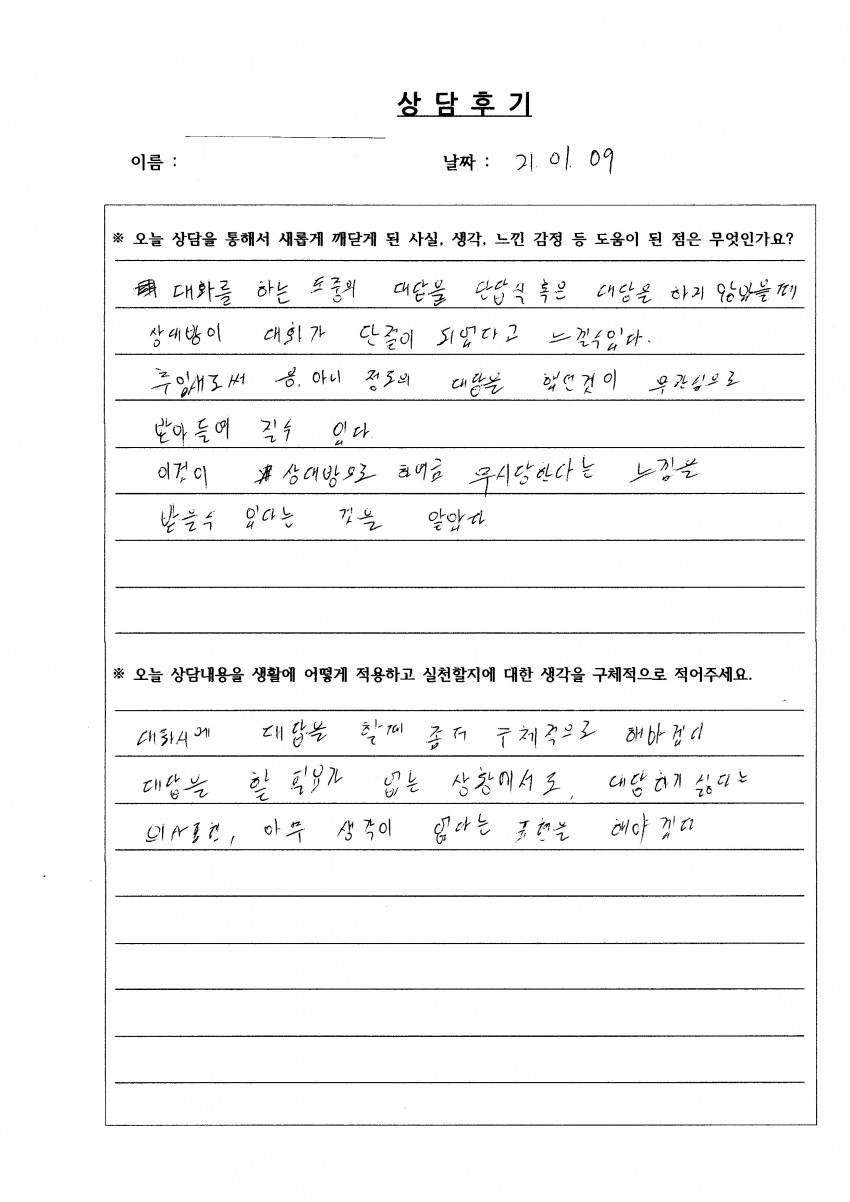 상 담 후 기
이름 :
날짜 : 21. 01. 09
※ 오늘 상담을 통해서 새롭게 깨닫게 된 사실, 생각, 느낀 감정 등 도움이 된 점은 무엇인가요?
대화를 하는 도중의 대답을 단답식 혹은 대답을 하지 않았을때
상대방이 대화가 단절이 되었다고 느낄수있다.
추임새로써 응, 아니 정도의 대답을 했던것이 무관심으로
받아들여 질수 있다
이것이 상대방으로 하여금 무시당한다는 느낌을
받을수 있다는 것을 알았다
※ 오늘 상담내용을 생활에 어떻게 적용하고 실천할지에 대한 생각을 구체적으로 적어주세요.
대화시에 대답을 할때 좀더 구체적으로 해야겠다
대답을 할 필요가 없는 상황에서도, 대답하기 싫다는
의사표현, 아무 생각이 없다는 표현을 해야겠다